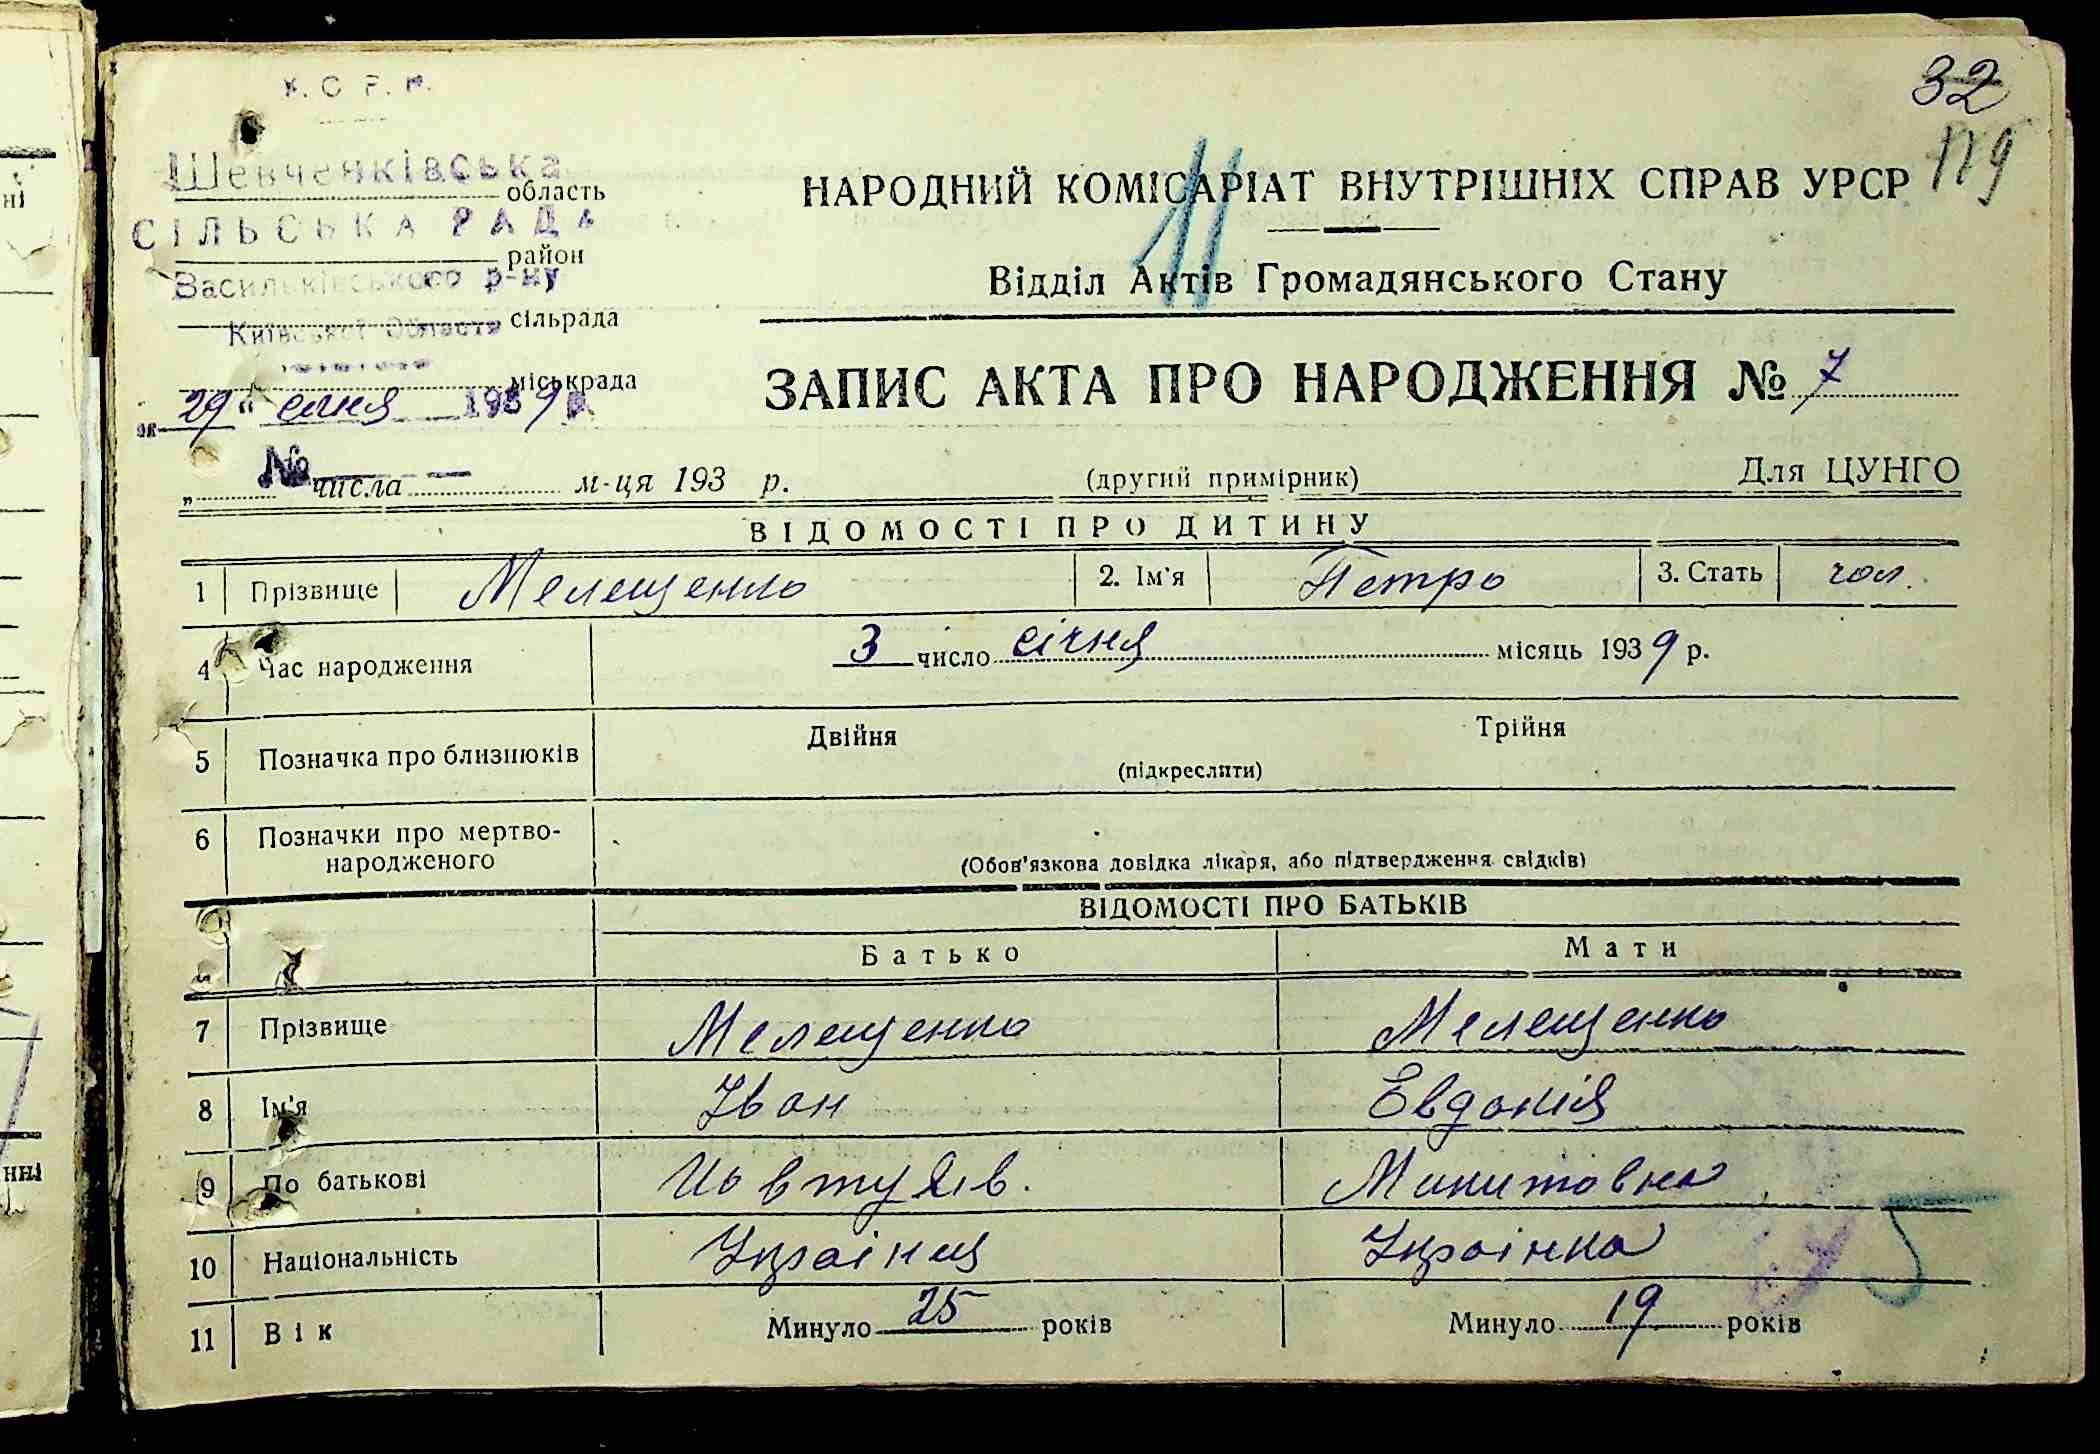 32
119
У.С.Р.Р.
Шевченківська
область
СІЛЬСЬКА РАДА
район
Васильківського р-ну
сільрада
Київської Області
міськрада
29 " січня 1939 р.
№
" числа м-ця 193 р.
11
НАРОДНИЙ КОМІСАРІАТ ВНУТРІШНІХ СПРАВ УРСР
Відділ Актів Громадянського Стану
ЗАПИС АКТА ПРО НАРОДЖЕННЯ № 7
(другий примірник) Для ЦУНГО
ВІДОМОСТІ ПРО ДИТИНУ
1 Прізвище Мелещенко 2. Ім'я Петро 3. Стать чол.
4 Час народження 3 число січня місяць 1939 р.
5 Позначка про близнюків Двійня Трійня
(підкреслити)
6 Позначки про мертво-
народженого
(Обов'язкова довідка лікаря, або підтвердження свідків)
ВІДОМОСТІ ПРО БАТЬКІВ
Батько Мати
7 Прізвище Мелещенко Мелещенко
8 Ім'я Іван Евдокія
9 По батькові Микитовна
10 Національність Українец Українка
11 Вік Минуло 25 років Минуло 19 років
5
нні